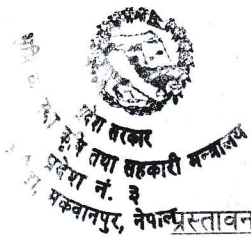 प्रदेश सरकार
कृषि तथा सहकारी मन्त्रालय
प्रदेश नं. ३
मकवानपुर, नेपाल
प्रस्तावन